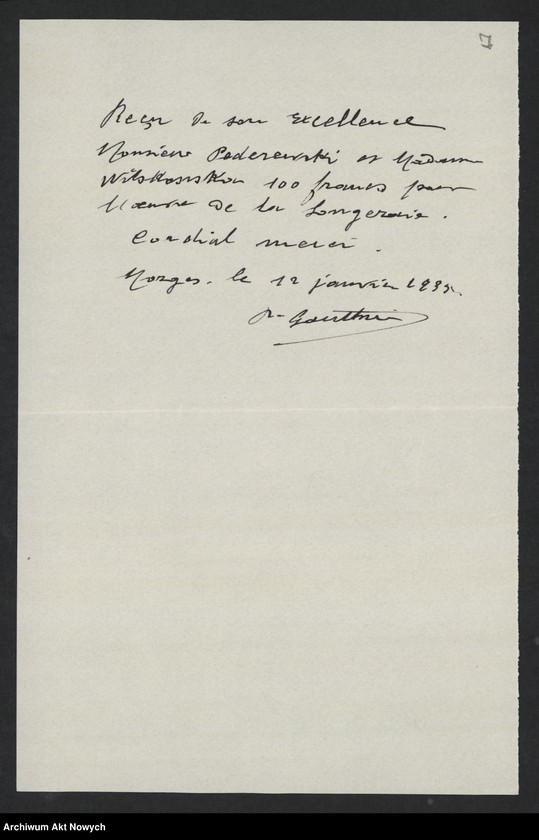 7
Reçu de son Excellence
Monsieur Paderewski et Madame
Wilskonska 100 francs pour
l'œuvre de la Longeraie.
Cordial merci.
Morges. le 12 janvier
Gauthier
Archiwum Akt Nowych